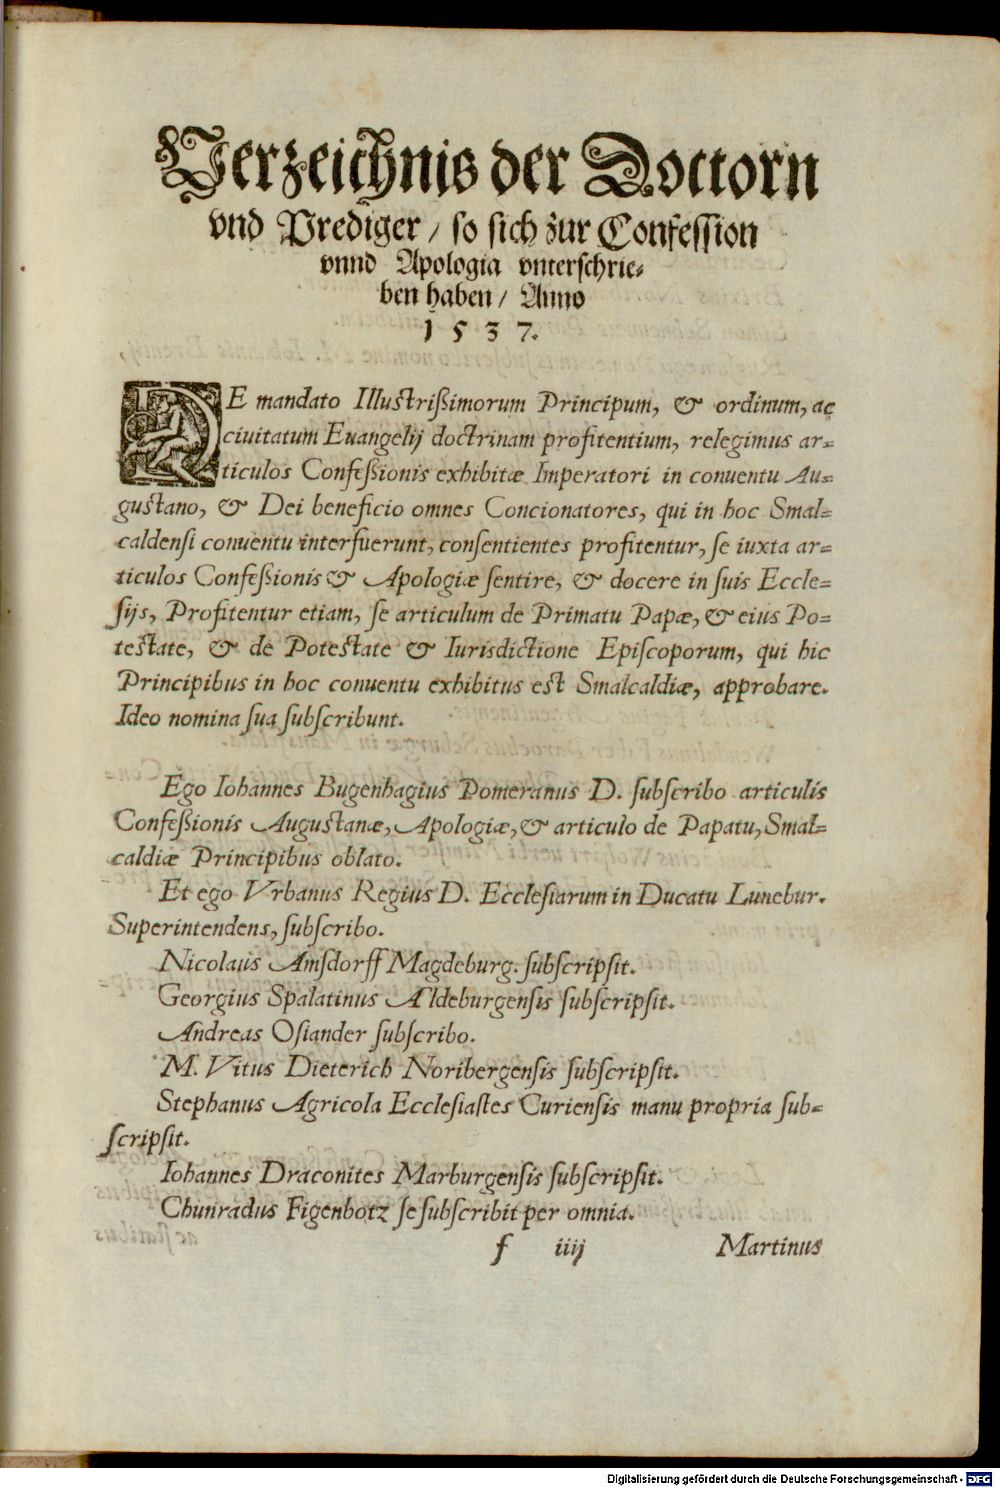 Verzeichnis der Doctorn
vnd Prediger / so sich zur Confession
vnnd Apologia vnterschrie⸗
ben haben / Anno
1 5 3 7.
DE mandato Illustrißimorum Principum, & ordinum, ac
ciuitatum Euangelij doctrinam profitentium, relegimus ar⸗
ticulos Confeßionis exhibitæ Imperatori in conuentu Au⸗
gustano, & Dei beneficio omnes Concionatores, qui in hoc Smal⸗
caldensi conuentu interfuerunt, consentientes profitentur, se iuxta ar⸗
ticulos Confeßionis & Apologiæ sentire, & docere in suis Eccle⸗
sijs, Profitentur etiam, se articulum de Primatu Papæ, & eius Po⸗
testate, & de Potestate & Iurisdictione Episcoporum, qui hic
Principibus in hoc conuentu exhibitus est Smalcaldiæ, approbare.
Ideo nomina sua subscribunt.
Ego Iohannes Bugenhagius Pomeranus D. subscribo articulis
Confeßionis Augustanæ, Apologiæ, & articulo de Papatu, Smal⸗
caldiæ Principibus oblato.
Et ego Vrbanus Regius D. Ecclesiarum in Ducatu Lunebur.
Superintendens, subscribo.
Nicolaus Amsdorff Magdeburg. subscripsit.
Georgius Spalatinus Aldeburgensis subscripsit.
Andreas Osiander subscribo.
M. Vitus Dieterich Noribergensis subscripsit.
Stephanus Agricola Ecclesiastes Curiensis manu propria sub⸗
scripsit.
Iohannes Draconites Marburgensis subscripsit.
Chunradus Figenbotz se subscribit per omnia.
f iiij Martinus
Digitalisierung gefördert durch die Deutsche Forschungsgemeinschaft - DFG